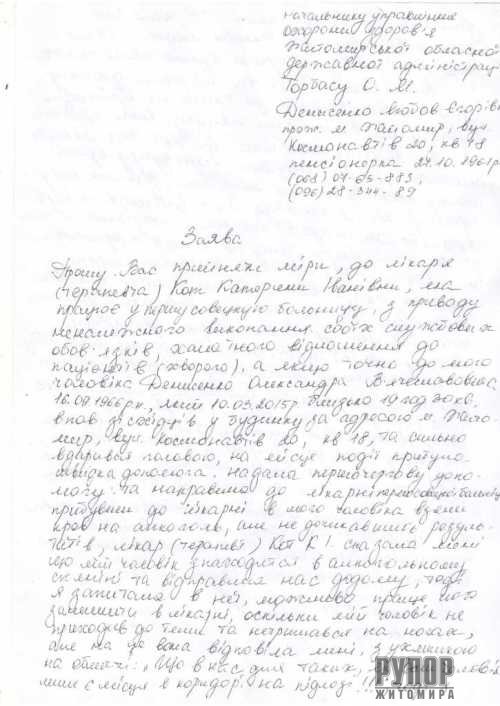 начальнику управління
охорони здоров'я
Житомирської обласної
державної адміністрац
Торбасу О. М.
Денисенко Любов Єгорівн
прож. м. Житомир, вул.
Космонавтів 20, кв 18
пенсіонерка 27.10.1961р
(068) 04-65-883,
(096) 28-344-89
Заява
Прошу Вас прийняти міри, до лікаря
(терапевта) Кот Катерини Іванівни, яка
працює у першу совецкую больницу, з приводу
неналежного виконання своїх службових
обов'язків, хамського відношення до
пацієнтів (хворого), а якщо точно до мого
чоловіка Денисенко Олександра Вячеславовича
16.09.1966р.н., який 10.03.2015р близько 19 год 30 хв.
впав зі сходців у будинку за адресою м. Жито-
мир, вул. Космонавтів 20, кв 18, та сильно
вдарився головою, на місце події приїхала
швидка допомога. надала першочергову допо-
могу та направила до лікарні
приїхавши до лікарні в мого чоловіка взяли
кров на алкоголь, але не дочекавшись резуль-
татів, лікар (терапевт) Кот К.І. сказала мені
що мій чоловік знаходится в алкогольному
сп'янінні та відправила нас додому, тоді
я запитала в неї, можливо краще його
залишити в лікарні, оскільки мій чоловік не
приходив до тями та нетримався на ногах,
але на це вона відповіла мені, з ухмилкою
на обличчі: "Що в нас для таких,
лиш є місця в коридорі на підлозі!!!
РУПОР
ЖИТОМИРА